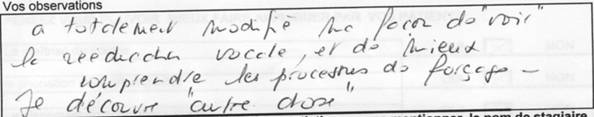 Vos observations
a totalement modifié ma façon de "voir"
la rééducation vocale, et de mieux
comprendre les processus de forçage -
Je découvre "autre chose"
le nom de stagiaire